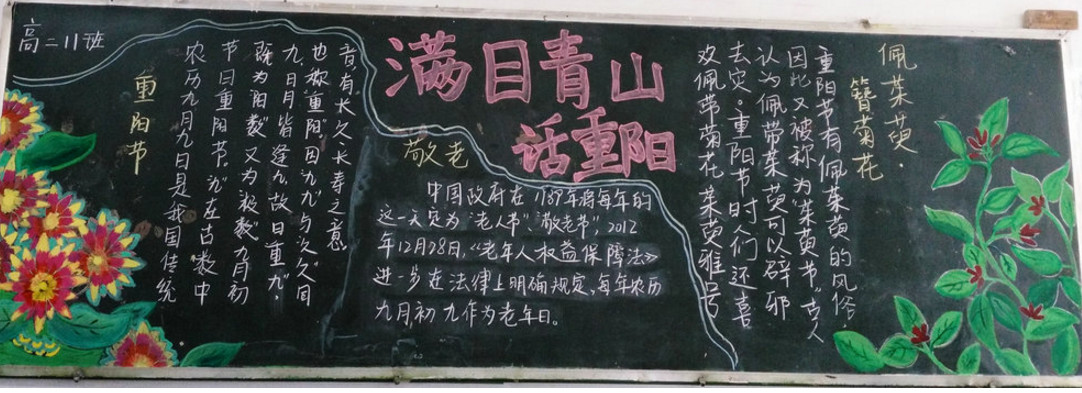 高二11班
满目青山
话重阳
重阳节
农历九月九日是我国传统
节日重阳节。"九"在古数中
既为"阳数"又为"极数"九月初
九,日月皆逢九,故曰"重九",
也称"重阳",因"九九"与"久久"同
音,有长久、长寿之意
敬老
中国政府在1989年将每年的
这一天定为"老人节"、"敬老节",2012
年12月28日,《老年人权益保障法》
进一步在法律上明确规定,每年农历
九月初九作为老年日。
佩茱萸·
簪菊花
重阳节有佩茱萸的风俗,
因此又被称为"茱萸节"古人
认为佩带茱萸可以辟邪
去灾。重阳节时人们还喜
欢佩带菊花,茱萸雅号